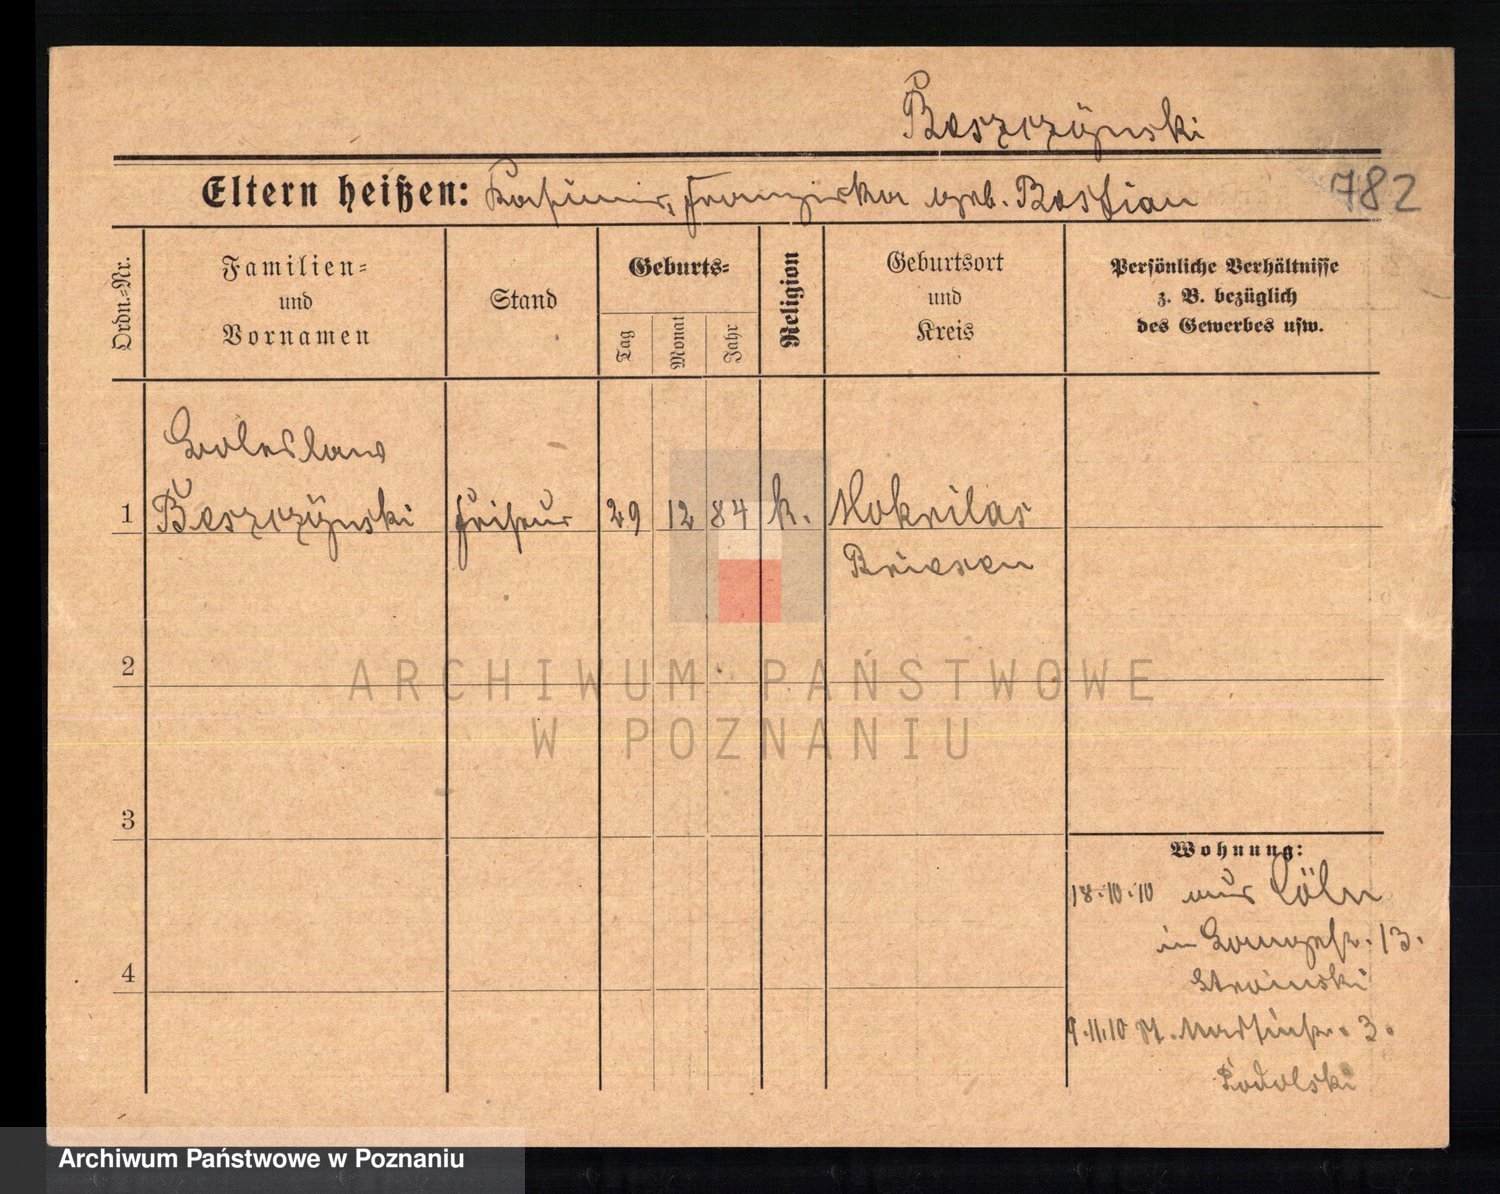 Beszczÿnski
Eltern heißen: Kasimir, Franziska geb. Bastian
782
Ordn.-Nr.
Familien-
und
Vornamen
Stand
Geburts-
Tag
Monat
Jahr
Religion
Geburtsort
und
Kreis
Persönliche Verhältnisse
z. B. bezüglich
des Gewerbes usw.
Boleslaw
1 Beszczÿnski Friseur 29 12 84 k. Mokrilas
Briesen
2
ARCHIWUM PAŃSTWOWE
W POZNANIU
3
Wohnung:
18.10.10 aus Cöln
in 13.
Stroinski
4
9.11.10 St. Martinstr. 3.
Podolski
Archiwum Państwowe w Poznaniu